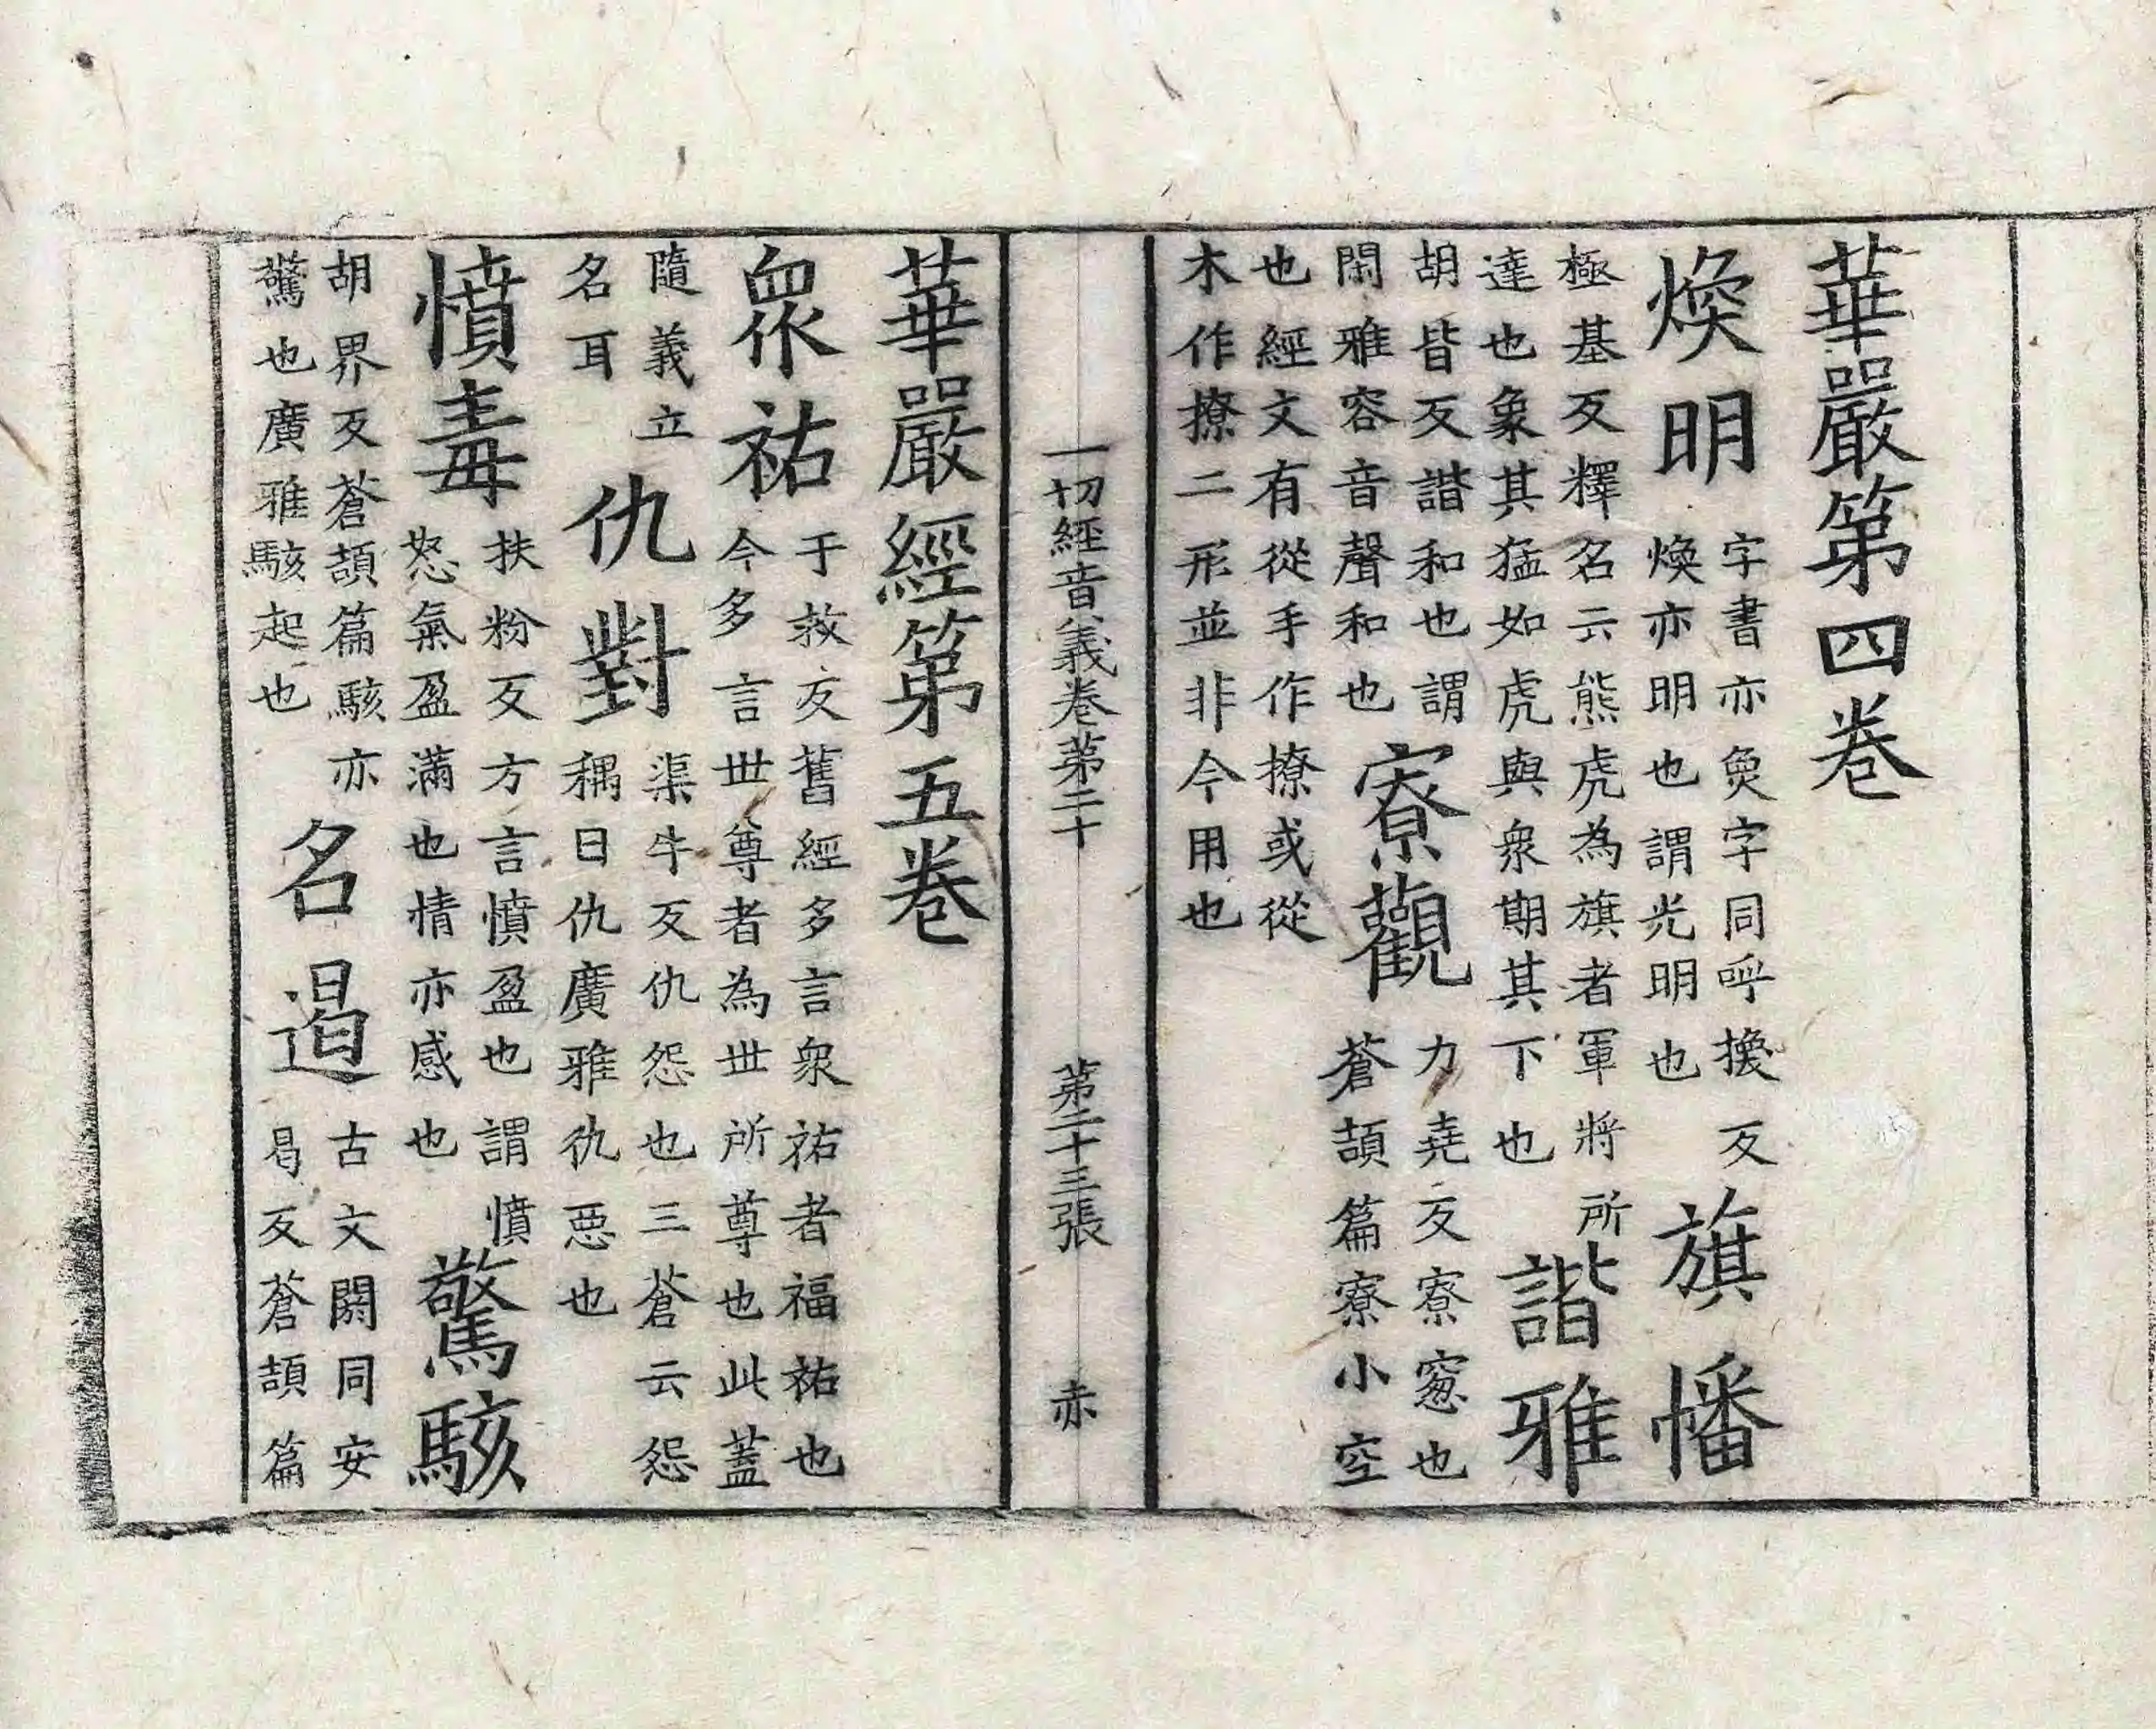 華嚴第四卷
煥明
字書亦奐字同呼換反
煥亦明也謂光明也
旗幡
極基反釋名云熊虎為旗者軍將所
達也象其猛如虎與衆期其下也
諧雅
胡皆反諧和也謂
閑雅容音聲和也
寮觀
力堯反寮窻也
蒼頡篇寮小空
也經文有從手作撩或從
木作撩二形並非今用也
一切經音義卷第二十 第二十三張 赤
華嚴經第五卷
衆祐
于救反舊經多言衆祐者福祐也
今多言世尊者為世所尊也此蓋
隨義立
名耳
仇對
渠牛反仇怨也三蒼云怨
耦曰仇廣雅仇惡也
憤毒
扶粉反方言憤盈也謂憤
怒氣盈滿也情亦感也
驚駭
胡界反蒼頡篇駭亦
驚也廣雅駭起也
名遏
古文閼同安
曷反蒼頡篇